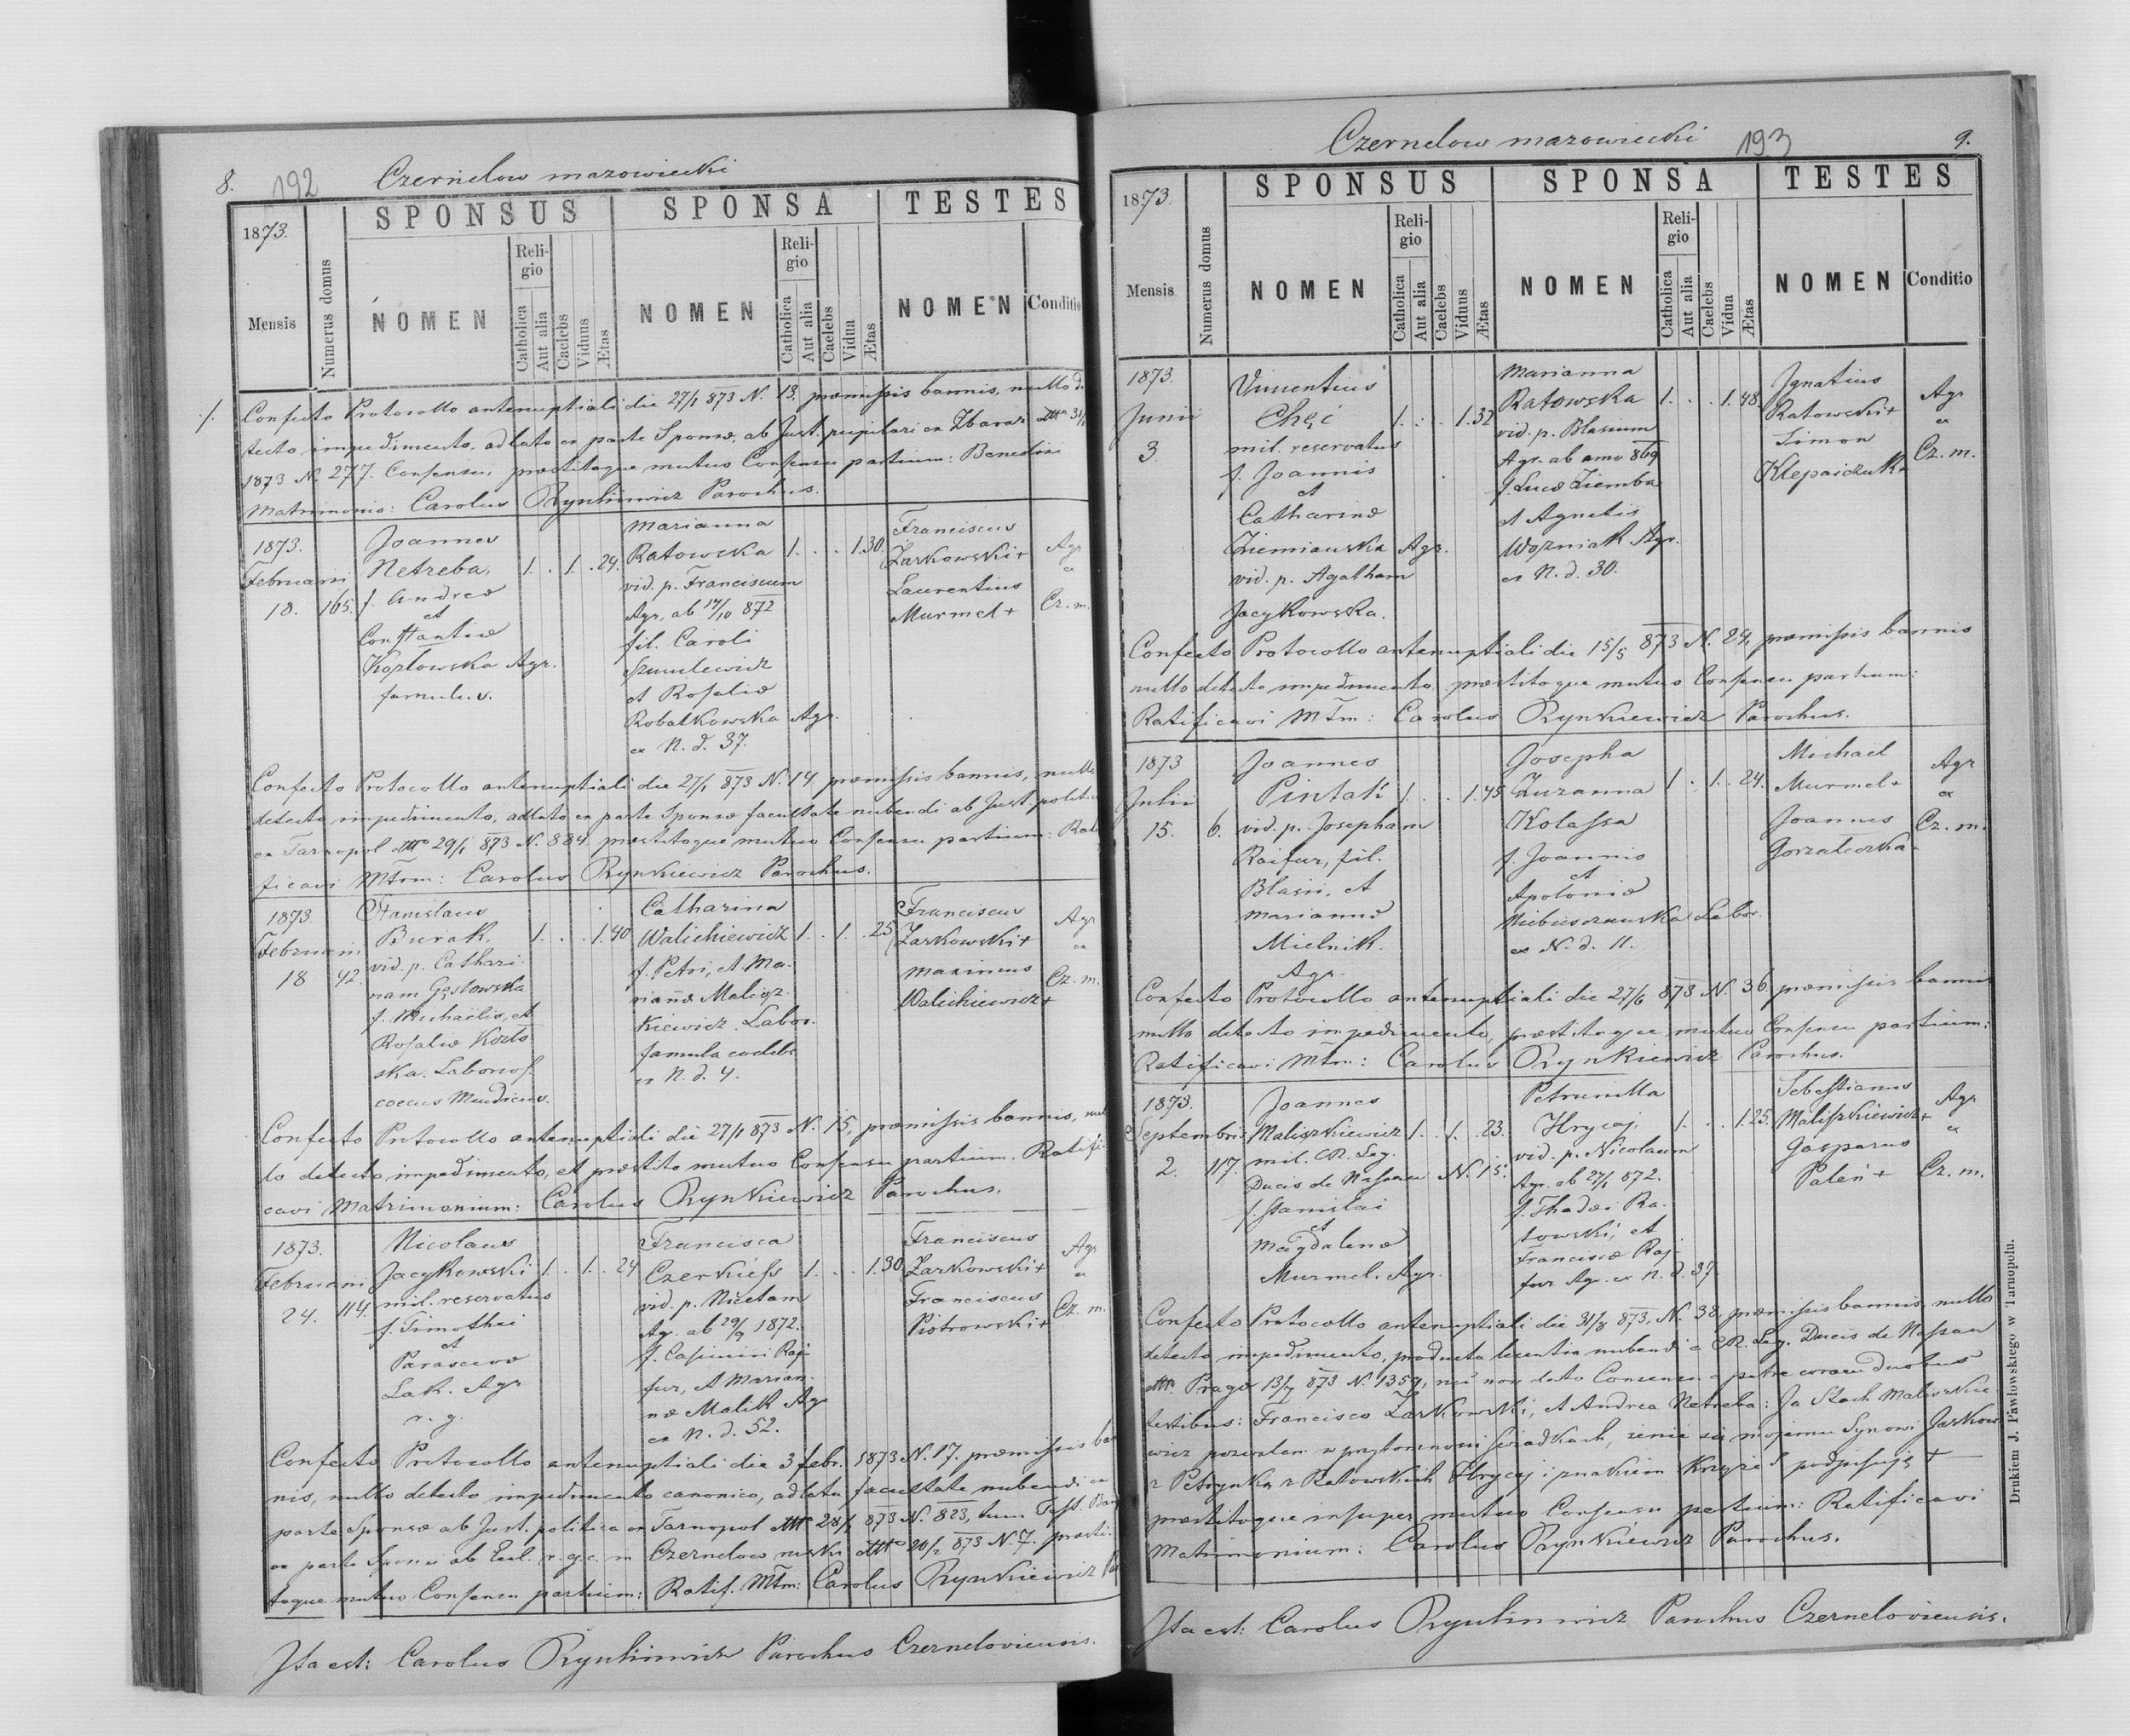 8. 192 Czernelow mazowiecki
1873.
SPONSUS SPONSA TESTES
Mensis
Numerus domus
NOMEN
Religio
Catholica
Aut alia
Caelebs
Viduus
Ætas
NOMEN
Religio
Catholica
Aut alia
Caelebs
Vidua
Ætas
NOMEN
Conditio
Confecto Protocollo antenuptiali die 27/1 873 N. 13. præmissis bannis, nullo de
tecto impedimento, adlato ex parte Sponsæ, ab Just. pupilari ex Zbaraz 31/1
1873 N. 277. Consensu, præstitoque mutuo Consensu partium: Benedixi
Matrimonio: Carolus Rynkiewicz Parochus.
1873.
Februarii
18. 165.
Joannes
Netreba,
f. Andreæ
et
Constantiæ
Kozlowska Agr.
famulus.
1. . 1. . 24.
Marianna
Ratowska
vid. p. Franciscum
Agr. ab 17/10 872
fil. Caroli
Szmulewicz
et Rosaliæ
Robatkowska Agr.
ex N. d. 37.
1. . . 1. 30.
Franciscus
Zarkowski +
Laurentius
Murmel +
Agr
ex
Cz. m.
Confecto Protocollo antenuptiali die 27/1 873 N. 14 præmissis bannis, nullo
detecto impedimento, adlato ex parte Sponsæ facultate nubendi ab Just. politica
ex Tarnopol 29/1 873 N. 884. præstitoque mutuo Consensu partium: Rati
ficavi Mtrm: Carolus Rynkiewicz Parochus.
1873
Februarii
18 42.
Stanislaus
Burak.
vid. p. Cathari
nam Gęstowska
f. Michaelis, et
Rosaliæ Kozło
ska. Laborios.
coecus Mendicus.
1. . . 1. 40
Catharina
Walichiewicz
f. Petri, et Ma-
riañæ Malisz-
kiewicz. Labor.
famula coelebs
ex N. d. 4.
1. . 1. . 25
Franciscus
Zarkowski +
Maximus
Walichiewicz +
Agr
ex
Cz. m.
Confecto Protocollo antenuptiali die 27/1 873 N. 15, præmissis bannis, nul
lo detecto impedimento, et præstito mutuo Consensu partium. Ratifi
cavi Matrimonium: Carolus Rynkiewicz Parochus.
1873.
Februarii
24. 114.
Nicolaus
Jacykowski
mil. reservatus
f. Timothei
et
Parascevæ
Lak. Agr
r. g.
1. . 1. . 24
Francisca
Czerkiess
vid. p. Nicetam
Ag. ab 29/9 1872.
f. Casimiri Raj-
fur, et Marian-
næ Malik Agr
ex N. d. 52.
1. . . 1. 30
Franciscus
Zarkowski +
Franciscus
Piotrowski +
Agr
ex
Cz. m.
Confecto Protocollo antenuptiali die 3 febr. 1873 N. 17. præmissis ban
nis, nullo detecto impedimento canonico, adlata facultate nubendi ex
parte Sponsæ ab Just. politica ex Tarnopol 28/1 873 N. 823, tum Test. Ban
ex parte Sponsi ab Eccl. r. g. c. in Czernelow ruski 20/2 873 N. 7. præsti
toque mutuo Consensu partium: Ratif. Mtm: Carolus Rynkiewicz Pa
Ita est: Carolus Rynkiewicz Parochus Czerneloviensis.
Czernelow mazowiecki 193 9.
1873.
SPONSUS SPONSA TESTES
Mensis
Numerus domus
NOMEN
Religio
Catholica
Aut alia
Caelebs
Viduus
Ætas
NOMEN
Religio
Catholica
Aut alia
Caelebs
Vidua
Ætas
NOMEN
Conditio
1873.
Junii
3.
Vincentius
Chęć
mil. reservatus
f. Joannis
et
Catharinæ
Ziemianska Agr.
vid. p. Agatham
Jacykowska.
1. . . 1. 32
Marianna
Ratowska
vid. p. Blasium
Agr. ab anno 869
f. Lucæ Ziemba
et Agnetis
Wozniak Agr.
ex N. d. 30.
1. . . 1. 48.
Ignatius
Ratowski +
Simon
Klepaiczuk +
Agr
ex
Cz. m.
Confecto Protocollo antenuptiali die 15/5 873 N. 24, præmissis bannis
nullo detecto impedimento præstitoque mutuo Consensu partium:
Ratificavi Mtm: Carolus Rynkiewicz Parochus.
1873
Julii
15. 6.
Joannes
Pintak
vid. p. Josepham
Raifur, fil.
Blasii, et
Mariannæ
Mielnik.
Agr.
1. . . 1. 45
Josepha
Zuzanna
Kolassa
f. Joannis
et
Apoloniæ
Niebieszanska Labor.
ex N. d. 11.
1 . 1. . 24.
Michael
Murmel +
Joannes
Gorzaleczka +
Agr
ex
Cz. m.
Confecto Protocollo antenuptiali die 27/6 873 N. 36, præmissis bannis
nullo detecto impedimento, præstitoque mutuo Consensu partium:
Ratificavi Mtm: Carolus Rynkiewicz Parochus.
1873.
Septembris
2. 117.
Joannes
Maliszkiewicz
mil. CR. Leg.
Ducis de Nassau N. 15.
f. Stanislai
et
Magdalenæ
Murmel. Agr.
1. . 1. . 23.
Petrunella
Hrycaj.
vid. p. Nicolaum
Agr. ab 27/1 872.
f. Thadæi Ra-
towski, et
Franciscæ Raj-
fur Agr. ex N. d. 37
1. . . 1. 25.
Sebestianus
Maliszkiewicz +
Gasparus
Paleń +
Agr
ex
Cz. m.
Confecto Protocollo antenuptiali die 31/8 873. N. 38, præmissis bannis, nullo
detecto impedimento, producta licentia nubendi a CR. Leg. Ducis de Nassau
Pragæ 13/7 873 N. 1359, nec non dato Consensu a patre coram duobus
testibus: Francisco Zarkowski, et Andrea Netreba: Ja Stach Maliszkie
wicz pozwalam w przytomnosci swiadkach, zenic się mojemu Synowi Jaskowi
z Petrynka z Ratowskich Hrycaj i znakiem Krzyża S podpisuję +
præstitoque insuper mutuo Consensu partium: Ratificavi
Matrimonium: Carolus Rynkiewicz Parochus.
Ita est: Carolus Rynkiewicz Parochus Czerneloviensis.
Drukiem J. Pawłowskiego w Tarnopolu.